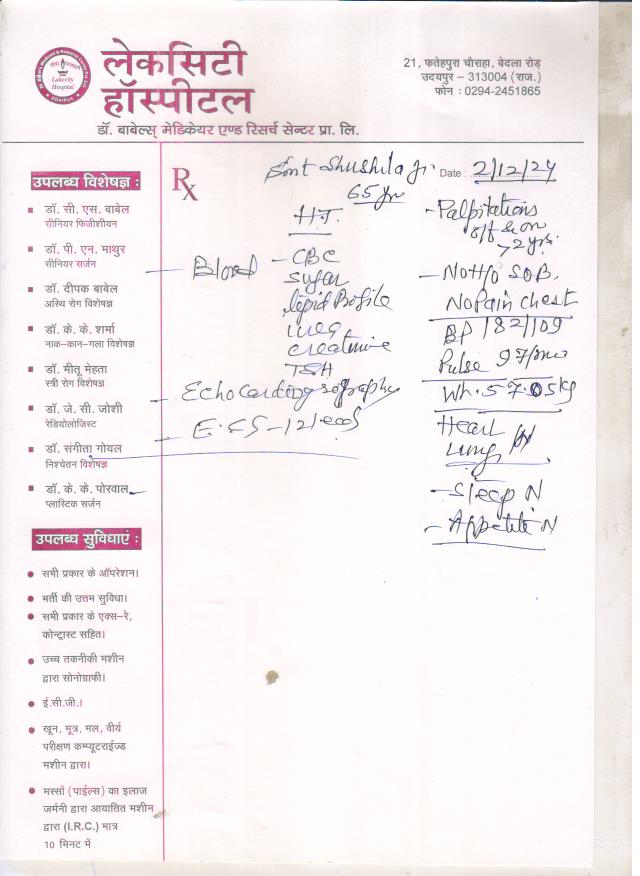 लेकसिटी
हॉस्पीटल
Lakecity
Hospital
UDAIPUR
डॉ. बाबेल्स् मेडिकेयर एण्ड रिसर्च सेन्टर प्रा. लि.
21, फतेहपुरा चौराहा, बेदला रोड़
उदयपुर – 313004 (राज.)
फोन : 0294-2451865
उपलब्ध विशेषज्ञ :
डॉ. सी. एस. बाबेल
सीनियर फिजीशीयन
डॉ. पी. एन. माथुर
सीनियर सर्जन
डॉ. दीपक बाबेल
अस्थि रोग विशेषज्ञ
डॉ. के. के. शर्मा
नाक–कान–गला विशेषज्ञ
डॉ. मीतू मेहता
स्त्री रोग विशेषज्ञ
डॉ. जे. सी. जोशी
रेडियोलोजिस्ट
डॉ. संगीता गोयल
निश्चेतन विशेषज्ञ
डॉ. के. के. पोरवाल
प्लास्टिक सर्जन
उपलब्ध सुविधाएं :
सभी प्रकार के ऑपरेशन।
भर्ती की उत्तम सुविधा।
सभी प्रकार के एक्स–रे,
कोन्ट्रास्ट सहित।
उच्च तकनीकी मशीन
द्वारा सोनोग्राफी।
ई.सी.जी.।
खून, मूत्र, मल, वीर्य
परीक्षण कम्प्यूटराईज्ड
मशीन द्वारा।
मस्सों (पाईल्स) का इलाज
जर्मनी द्वारा आयातित मशीन
द्वारा (I.R.C.) मात्र
10 मिनट में
Rx
Smt Shushila Ji
Date : 2/12/24
65 yr
H.T.
Blood - CBC
Sugar
lipid Profile
Creatinine
TSH
Echocardiography
E.C.G - 12 lead
- Palpitations
off & on
2 yrs.
- No H/o SOB.
No Pain chest
BP 182/109
Pulse 97/min
Wt. 57.05kg
Heart
Lung N
- Sleep N
- Appetite N